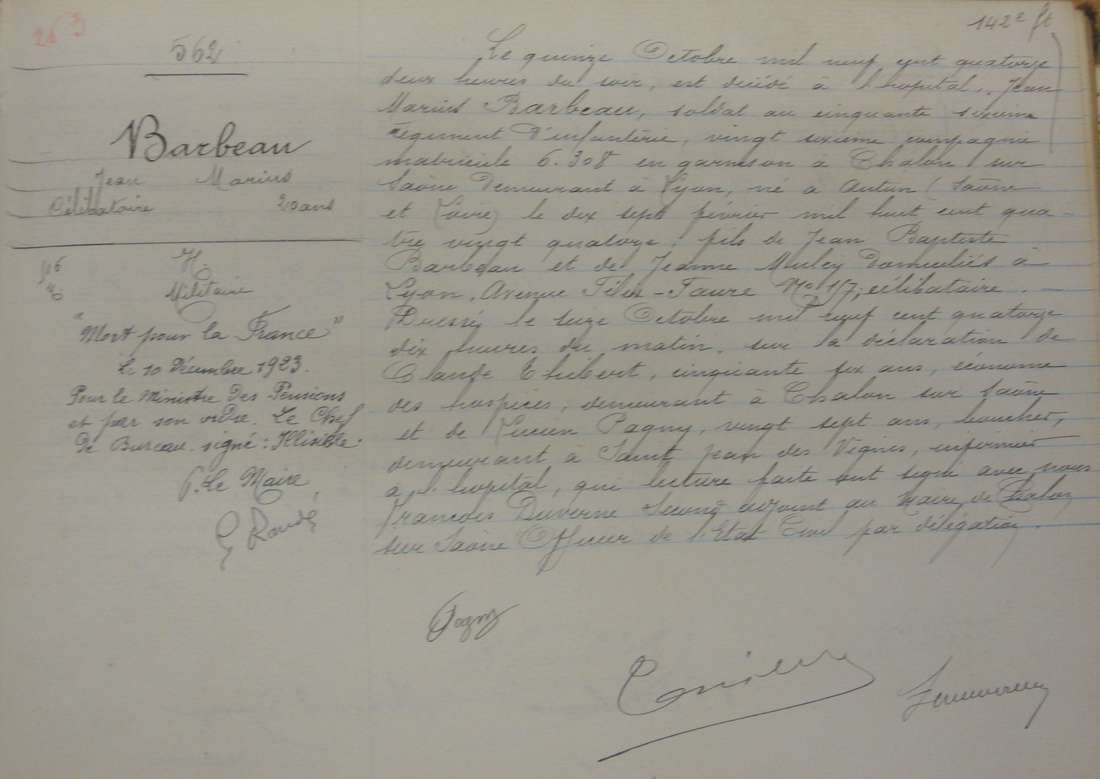 26 3
142e ft
562
Barbeau
Jean Marius
Célibataire 20 ans
Militaire
"Mort pour la France"
Le 10 Décembre 1923.
Pour le Ministre Des Pensions
et par son ordre. Le Chef
De Bureau signé : Illisible.
P. Le Maire,
Le quinze Octobre mil neuf cent quatorze
deux heures du soir, est décédé à l'hopital, Jean
Marius Barbeau, soldat au cinquante sixième
régiment D'infanterie, vingt sixième compagnie
matricule 6.308 en garnison à Chalon sur
Saône Demeurant à Lyon, né à Autun (Saône
et Loire) le dix sept février mil huit cent qua-
tre vingt quatorze, fils de Jean Baptiste
Barbeau et de Jeanne Domiciliés à
Lyon, Avenue Félix-Faure No 117, célibataire. -
Dressé le seize Octobre mil neuf cent quatorze
dix heures du matin, sur la déclaration de
Claude Thibert, cinquante six ans, économe
des hospices, demeurant à Chalon sur Saône
et de Lucien Pagny, vingt sept ans, boucher,
demeurant à Saint Jean des Vignes, infirmier
à l'hopital, qui lecture faite ont signé avec nous
François Duverne Second adjoint au Maire de Chalon
sur Saône Officier de l'Etat Civil par délégation.
Pagny